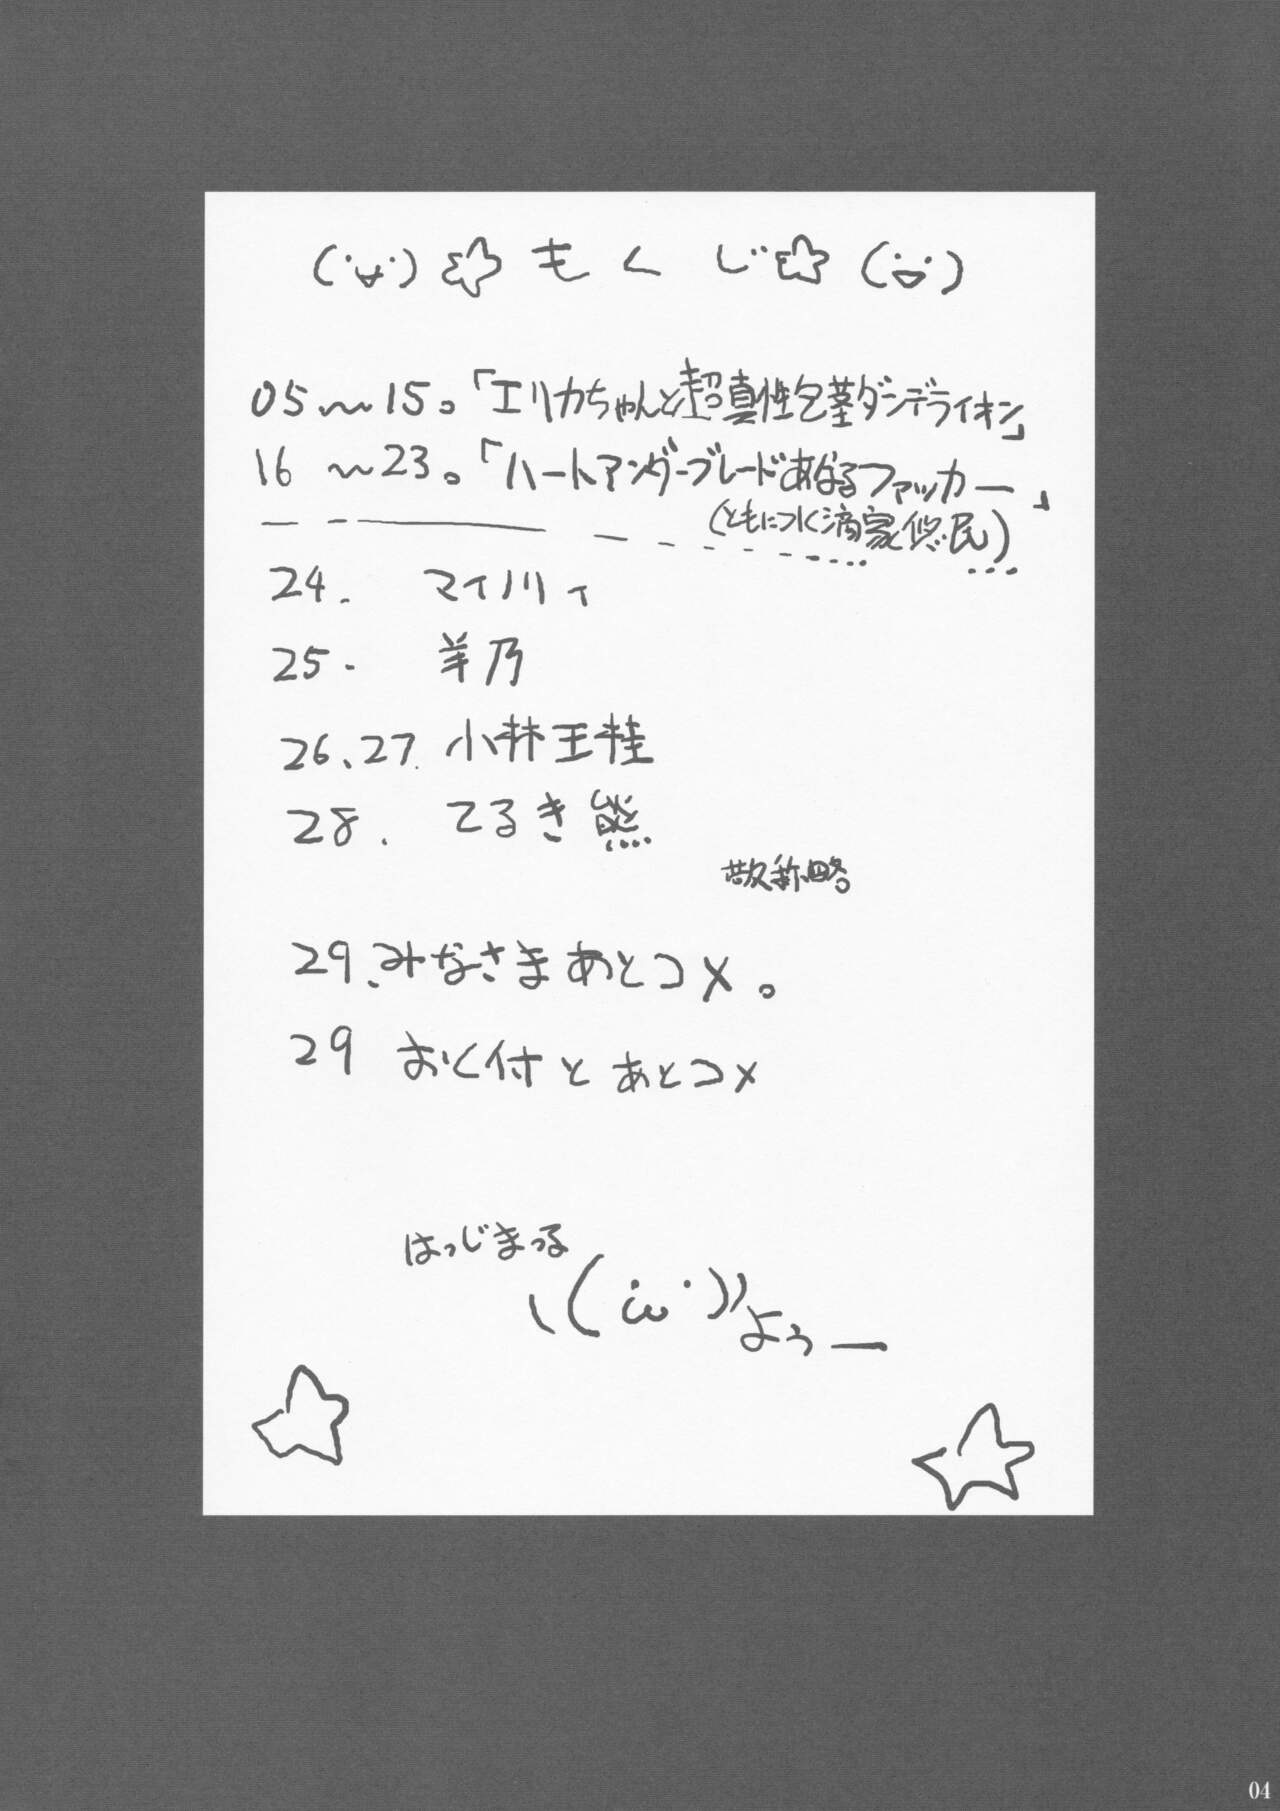 (･∀･)☆もくじ☆(･∀･)
05〜15。「エリカちゃんと超真性包茎ダンデライオン」
16〜23。「ハートアンダーブレードあばるファッカー」
(ともにつく滴家悠民)
24. マイノリィ
25. 羊乃
26、27. 小林王桂
28. てるき熊
敬称略。
29、みなさまあとコメ。
29 おく付とあとコメ
はっじまっる
ヽ(･ω･)ﾉ
よぅー
04